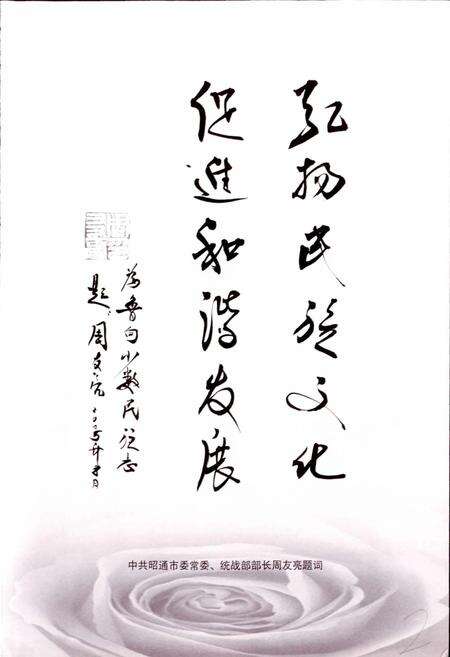 弘扬民族文化
促進和谐发展
为鲁甸少数民族志
题 周友亮
中共昭通市委常委、统战部部长周友亮题词